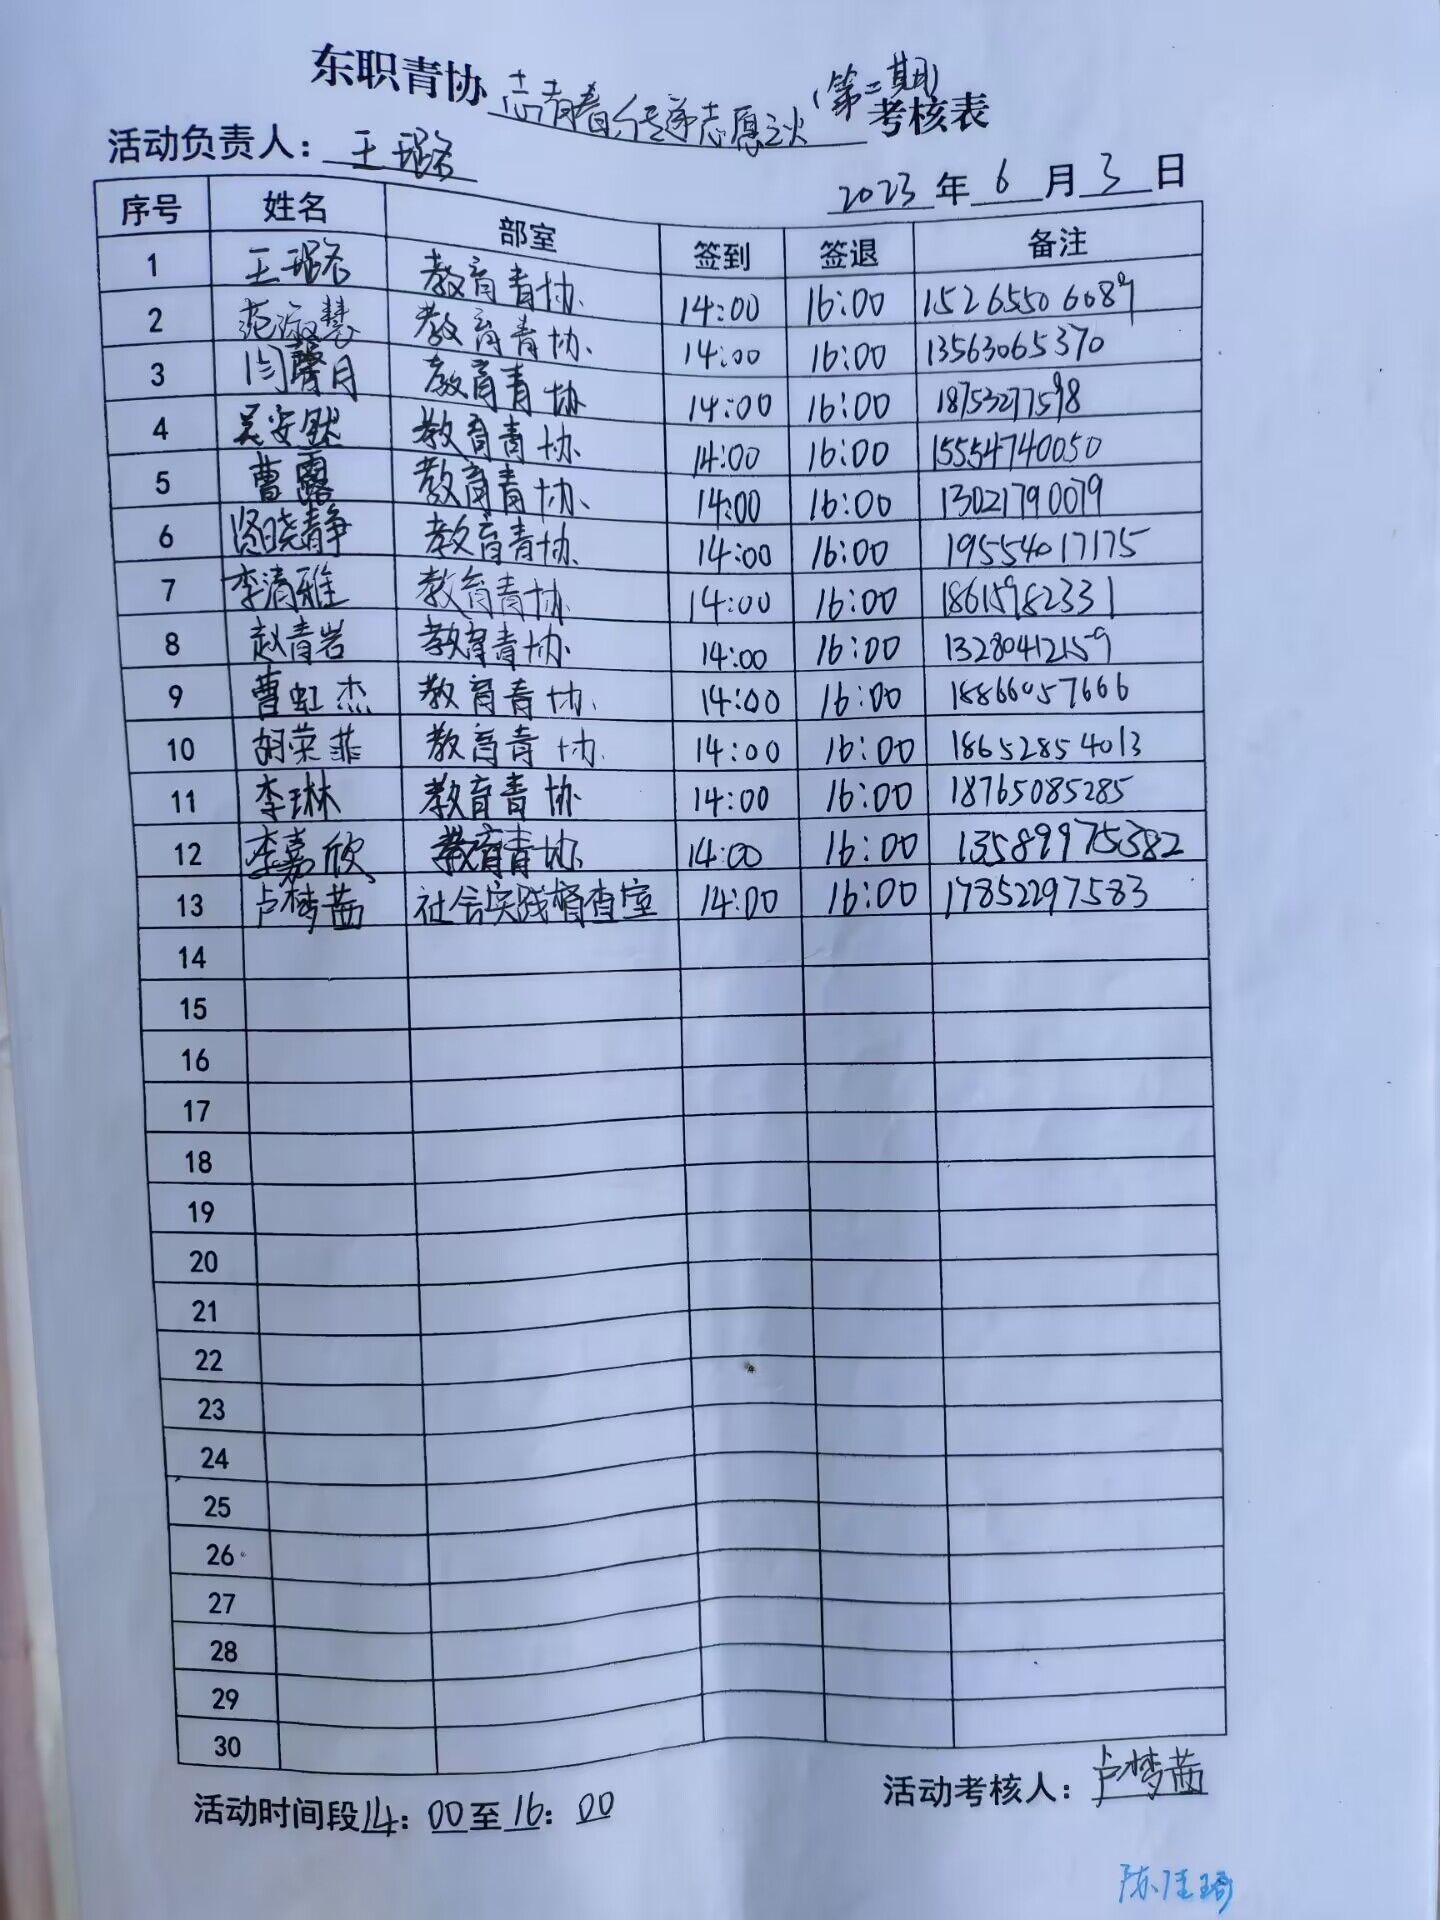 东职青协 志青春传递志愿之火（第二期）考核表
活动负责人：王璐
2023年6月3日
序号 姓名 部室 签到 签退 备注
1 王璐 教育青协 14:00 16:00 15265506089
2 范淑慧 教育青协 14:00 16:00 13563065370
3 闫馨月 教育青协 14:00 16:00 18753277598
4 吴安然 教育青协 14:00 16:00 15554740050
5 曹露 教育青协 14:00 16:00 13021790079
6 贤晓静 教育青协 14:00 16:00 19554017175
7 李清雅 教育青协 14:00 16:00 18615982331
8 赵青岩 教育青协 14:00 16:00 13280412159
9 曹虹杰 教育青协 14:00 16:00 18866057666
10 胡荣菲 教育青协 14:00 16:00 18652854013
11 李琳 教育青协 14:00 16:00 18765085285
12 李嘉欣 教育青协 14:00 16:00 13589975382
13 卢梦茜 社会实践督查室 14:00 16:00 17852297583
14
15
16
17
18
19
20
21
22
23
24
25
26
27
28
29
30
活动时间段14：00至16：00
活动考核人：卢梦茜
陈佳琦